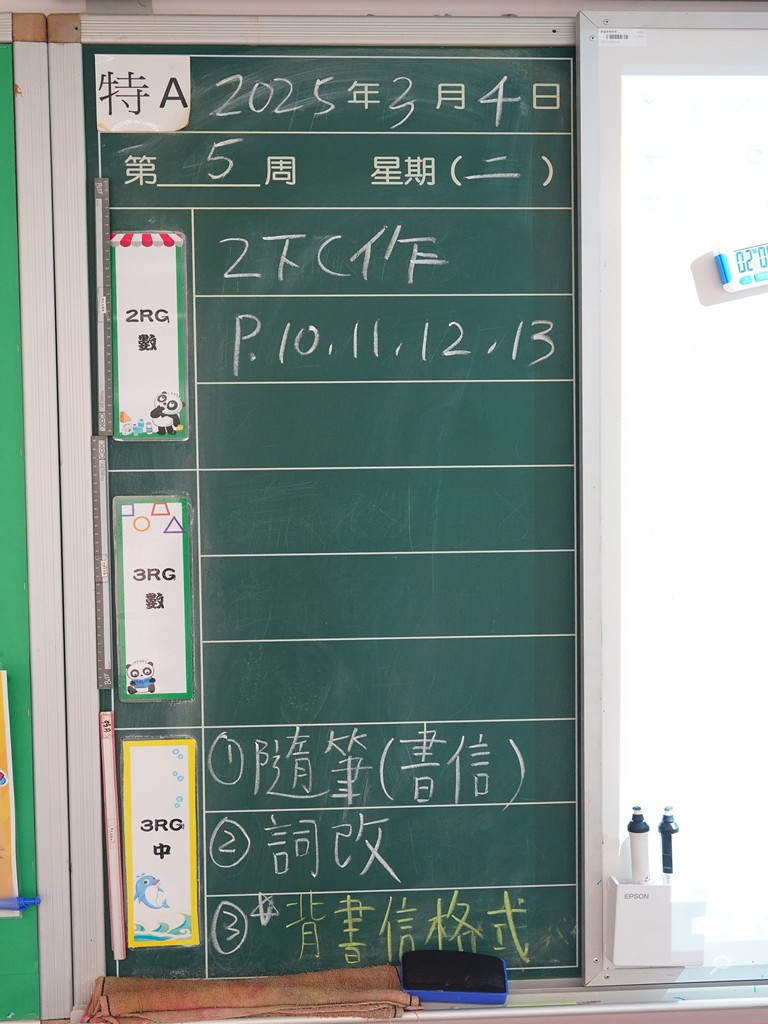 特A 2025年3月4日
第5周 星期(二)
2RG
數
2下C作
P.10.11.12.13
3RG
數
3RG
中
①隨筆(書信)
②詞改
③*背書信格式
EPSON